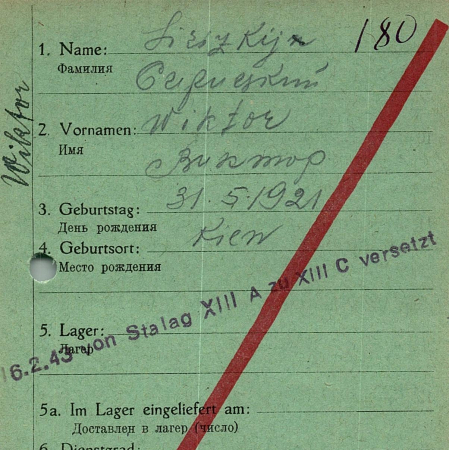 180
1. Name:
Фамилия
Wiktor
2. Vornamen: Wiktor
Имя
Виктор
3. Geburtstag: 31.5.1921
День рождения
4. Geburtsort: Kiew
Место рождения
16.2.43 von Stalag XIII A zu XIII C versetzt
5. Lager:
Лагерь
5a. Im Lager eingeliefert am:
Доставлен в лагерь (число)
6. Dienstgrad: